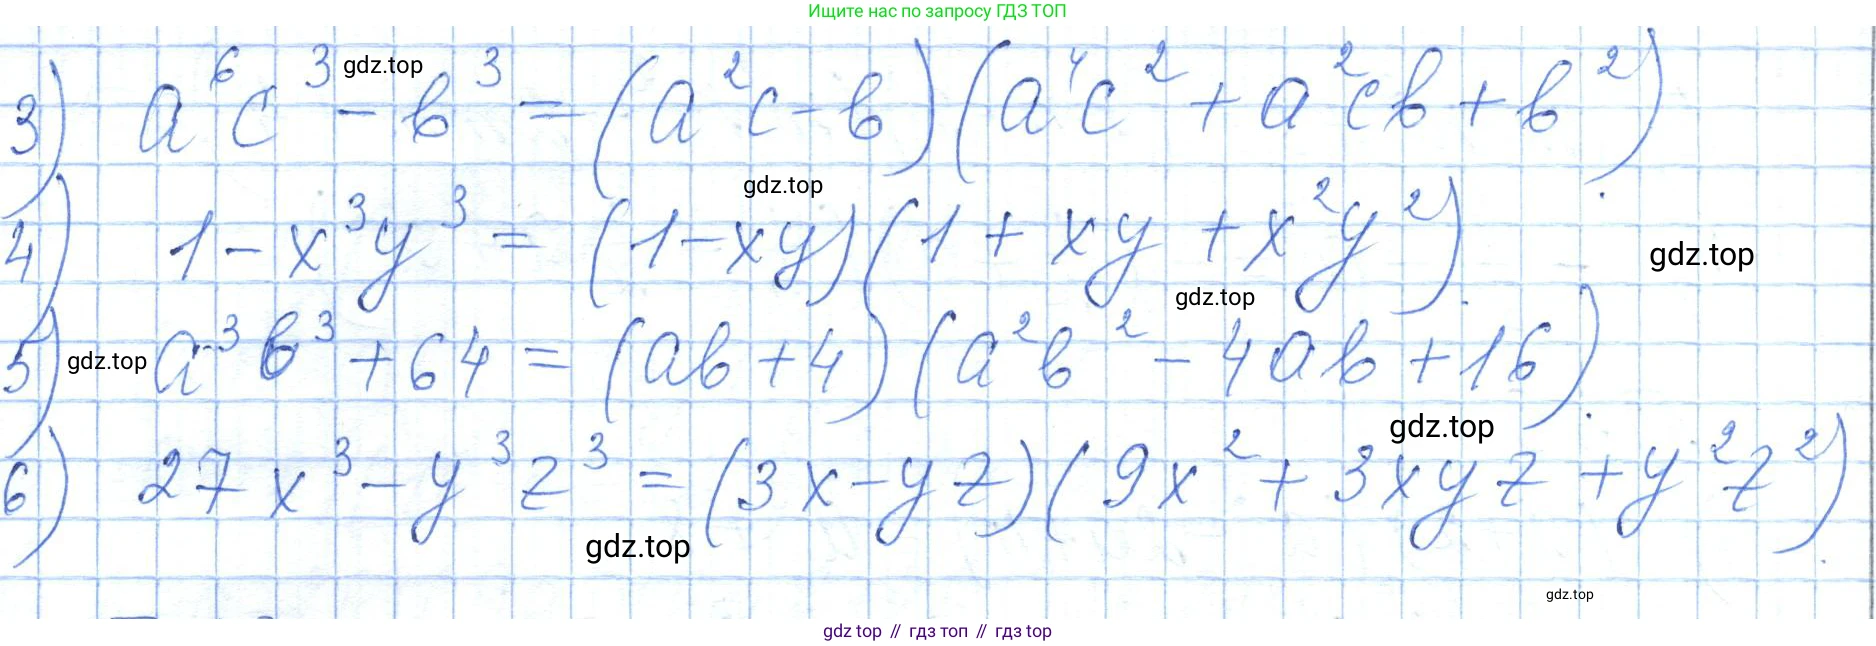 Ищите нас по запросу ГДЗ ТОП
3) a⁶c³ - b³ = (a²c - b)(a⁴c² + a²cb + b²)
gdz.top
gdz.top
4) 1 - x³y³ = (1 - xy)(1 + xy + x²y²).
gdz.top
gdz.top
5) a³b³ + 64 = (ab + 4)(a²b² - 4ab + 16).
gdz.top
gdz.top
6) 27x³ - y³z³ = (3x - yz)(9x² + 3xyz + y²z²).
gdz.top
gdz.top
gdz top // гдз топ // гдз top